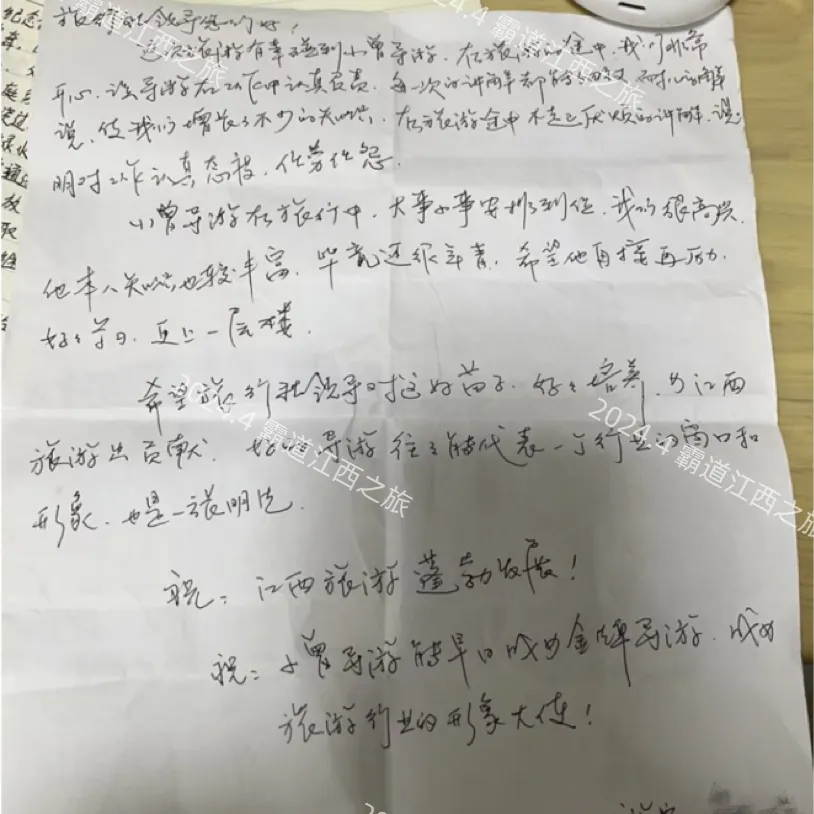 旅行社领导您们好！
这次旅游有幸碰到小曾导游，在旅游的途中，我们非常
开心，该导游在工作中认真负责，每一次的讲解都能细致耐心的解
说，使我们增长了不少的知识，在旅游途中不怕厌烦的讲解，说
明对工作认真态度，任劳任怨。
小曾导游在旅行中，大事小事安排到位，我们很高兴，
他本人知识也较丰富，毕竟还很年青，希望他再接再厉，
好好学习，更上一层楼。
希望旅行社领导对这好苗子，好好培养，为江西
旅游出贡献，好的导游往往能代表一个行业的窗口和
形象，也是一张明片。
祝：江西旅游蓬勃发展！
祝：小曾导游能早日成为金牌导游，成为
旅游行业的形象大使！
2024.4 霸道江西之旅
2024.4 霸道江西之旅
2024.4 霸道江西之旅